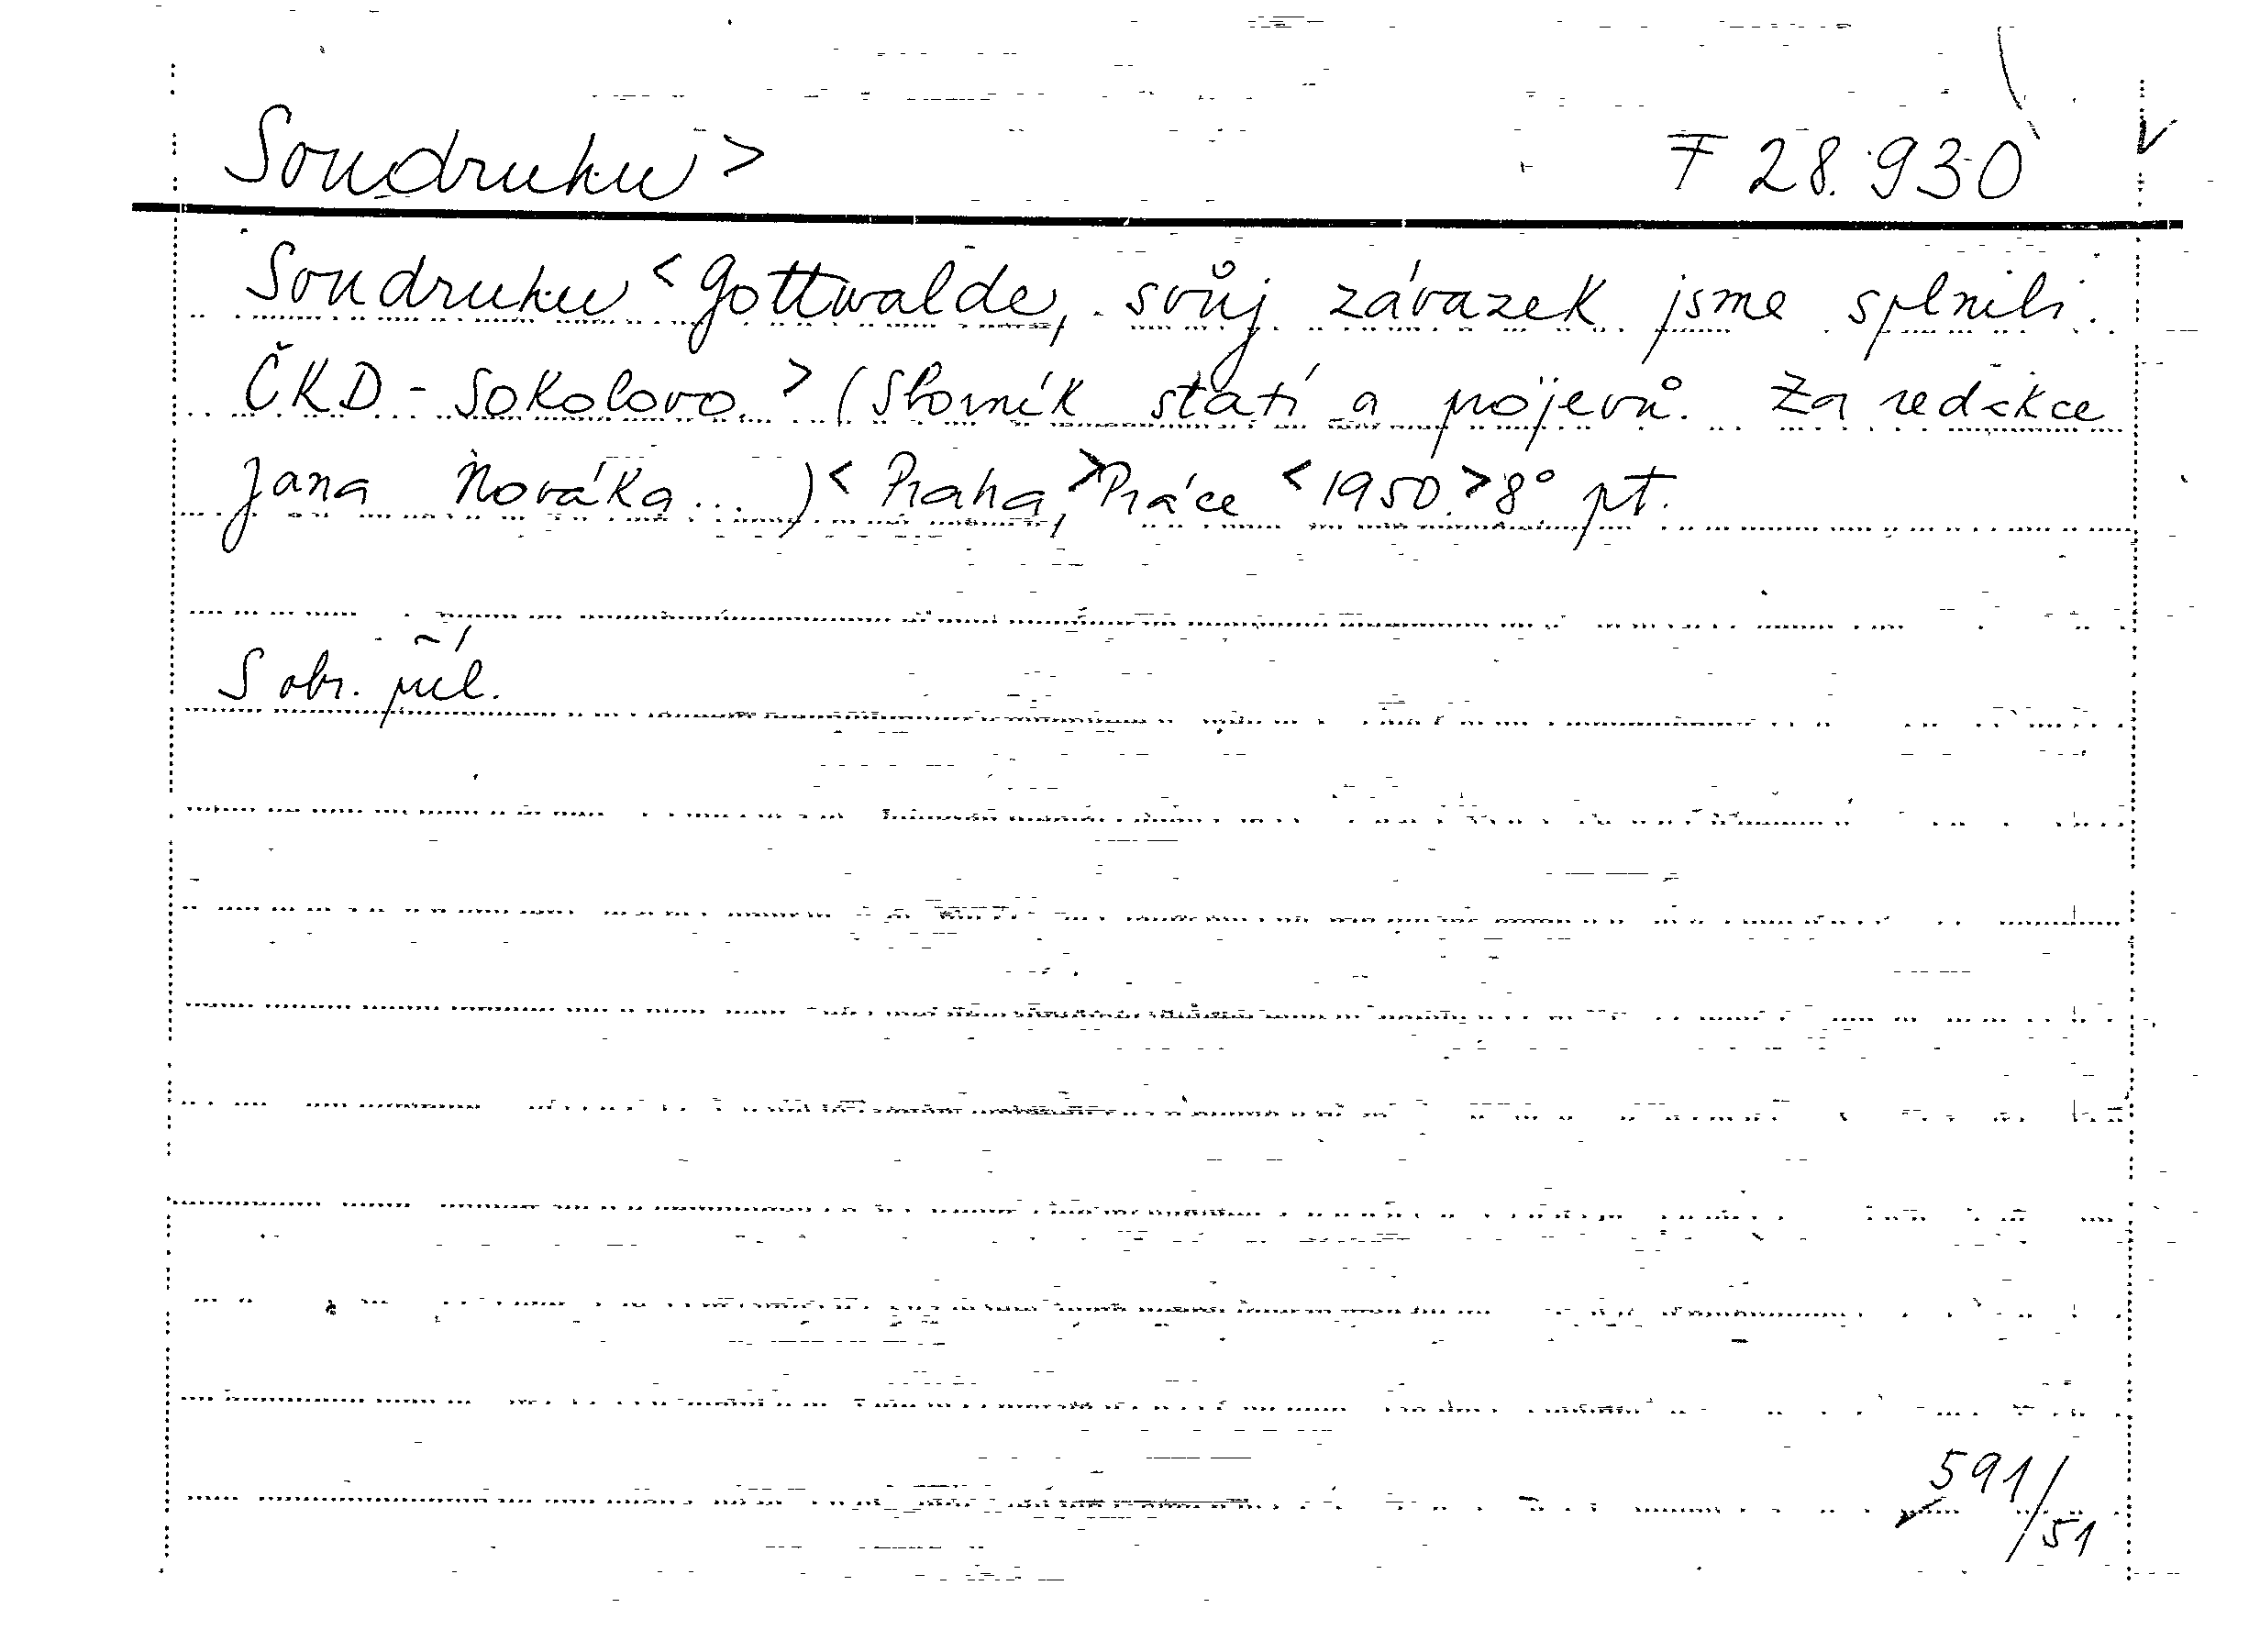 Soudruhu > F 28.930 V
Soudruhu < Gottwalde, svůj závazek jsme splnili.
ČKD - Sokolovo > (Sborník statí a projevů. Za redakce
Jana Nováka...) < Praha, > Práce < 1950. > 8° pt.
S obr. příl.
591/51